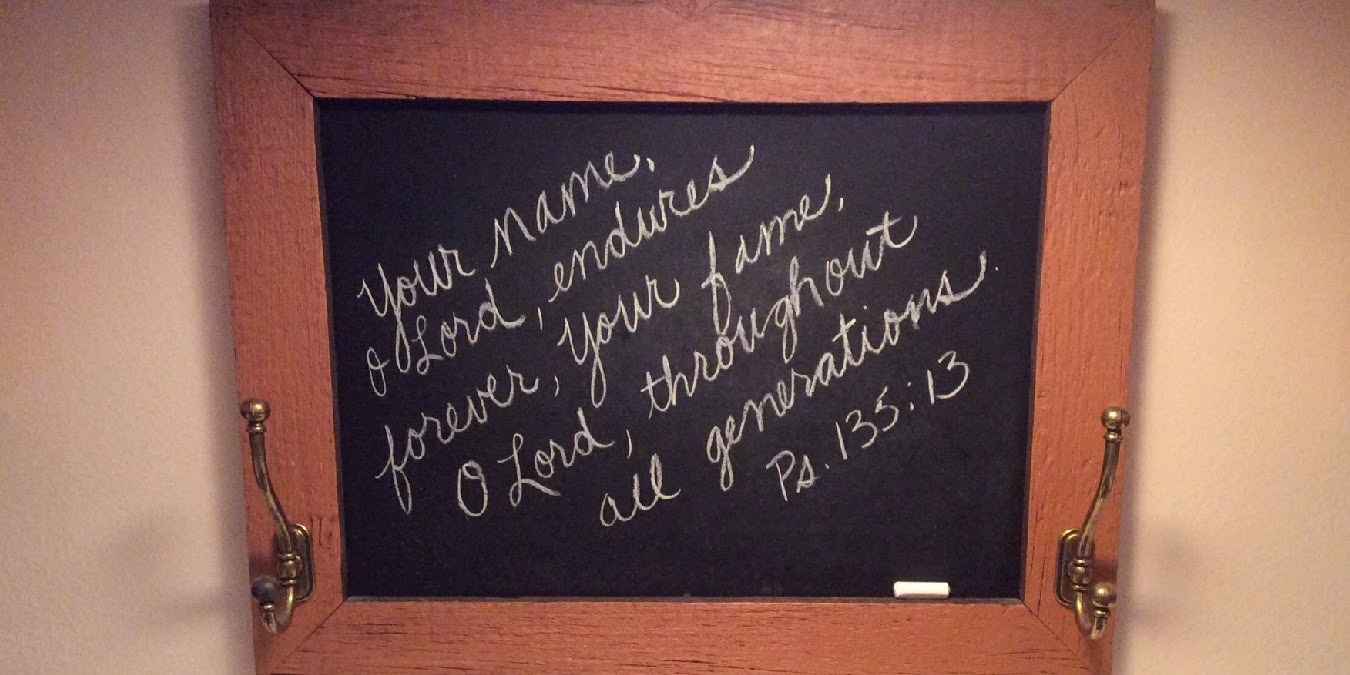 Your name,
O Lord, endures
forever, your fame,
O Lord, throughout
all generations.
Ps. 135:13